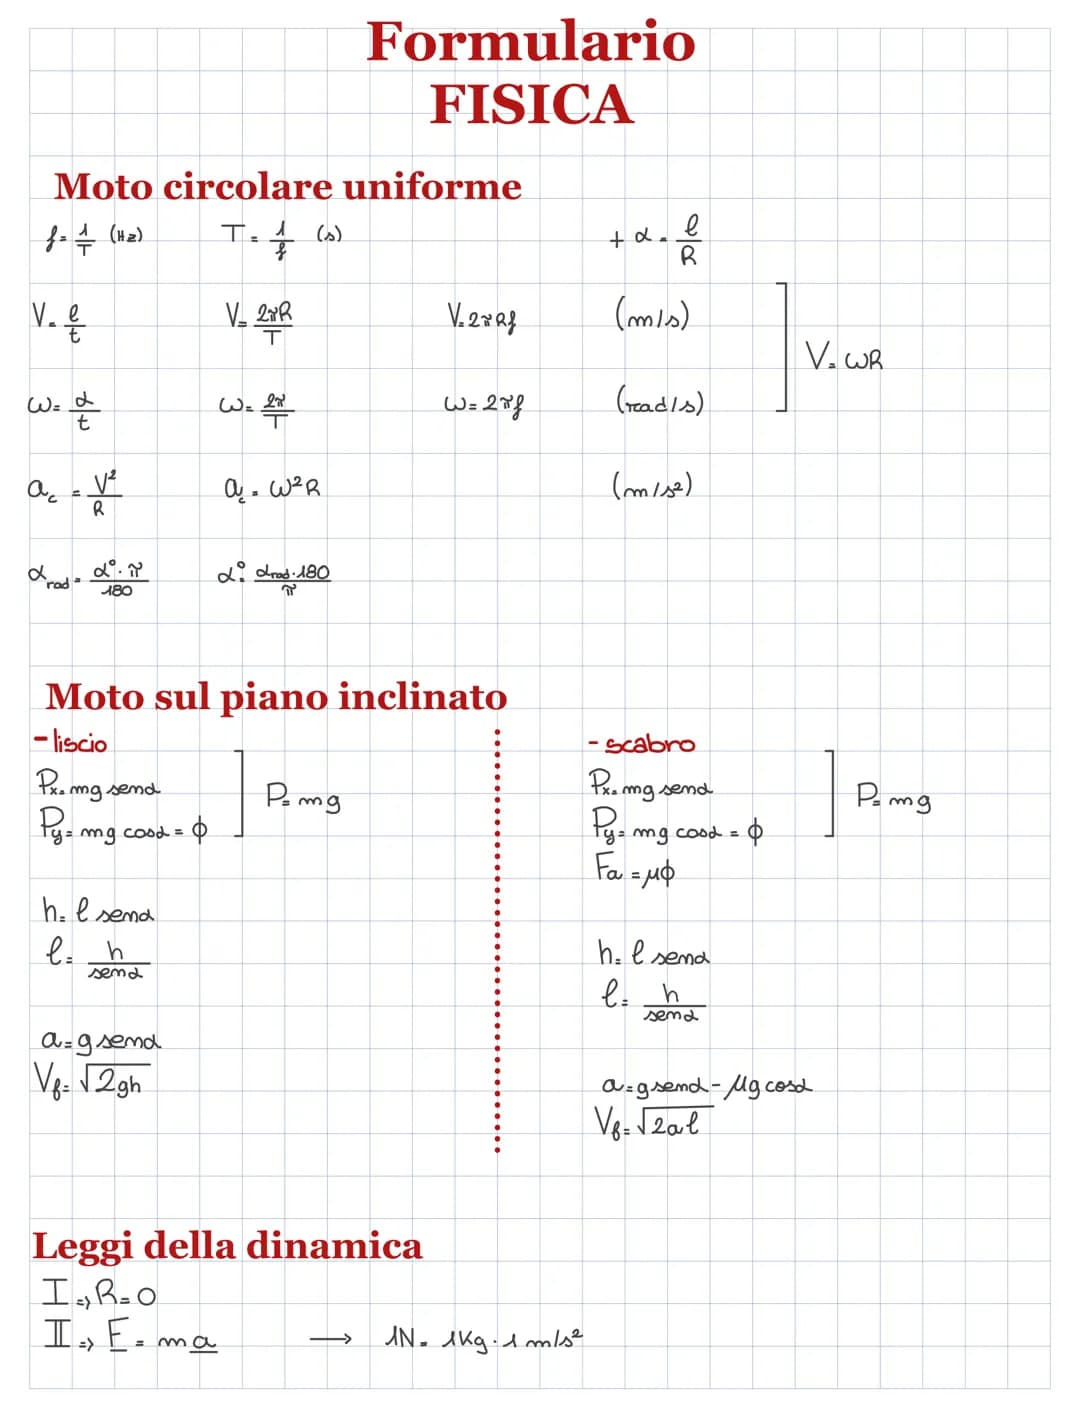 Formulario
FISICA
Moto circolare uniforme
f = 1/T (Hz) T = 1/f (s) + α = ℓ/R
V = ℓ/t V = 2πR/T V = 2πRf (m/s)
V = ωR
ω = α/t ω = 2π/T ω = 2πf (rad/s)
a_c = V²/R a_c = ω²R (m/s²)
α_rad = α°·π/180 α° = α_rad·180/π
Moto sul piano inclinato
- liscio
Px = mg senα
P = mg
Py = mg cosα = ϕ
h = ℓ senα
ℓ = h/senα
a = g senα
Vf = √2gh
- scabro
Px = mg senα
P = mg
Py = mg cosα = ϕ
Fa = μϕ
h = ℓ senα
ℓ = h/senα
a = g senα - μg cosα
Vf = √2aℓ
Leggi della dinamica
I => R = 0
II => F = ma → 1N = 1Kg · 1 m/s²